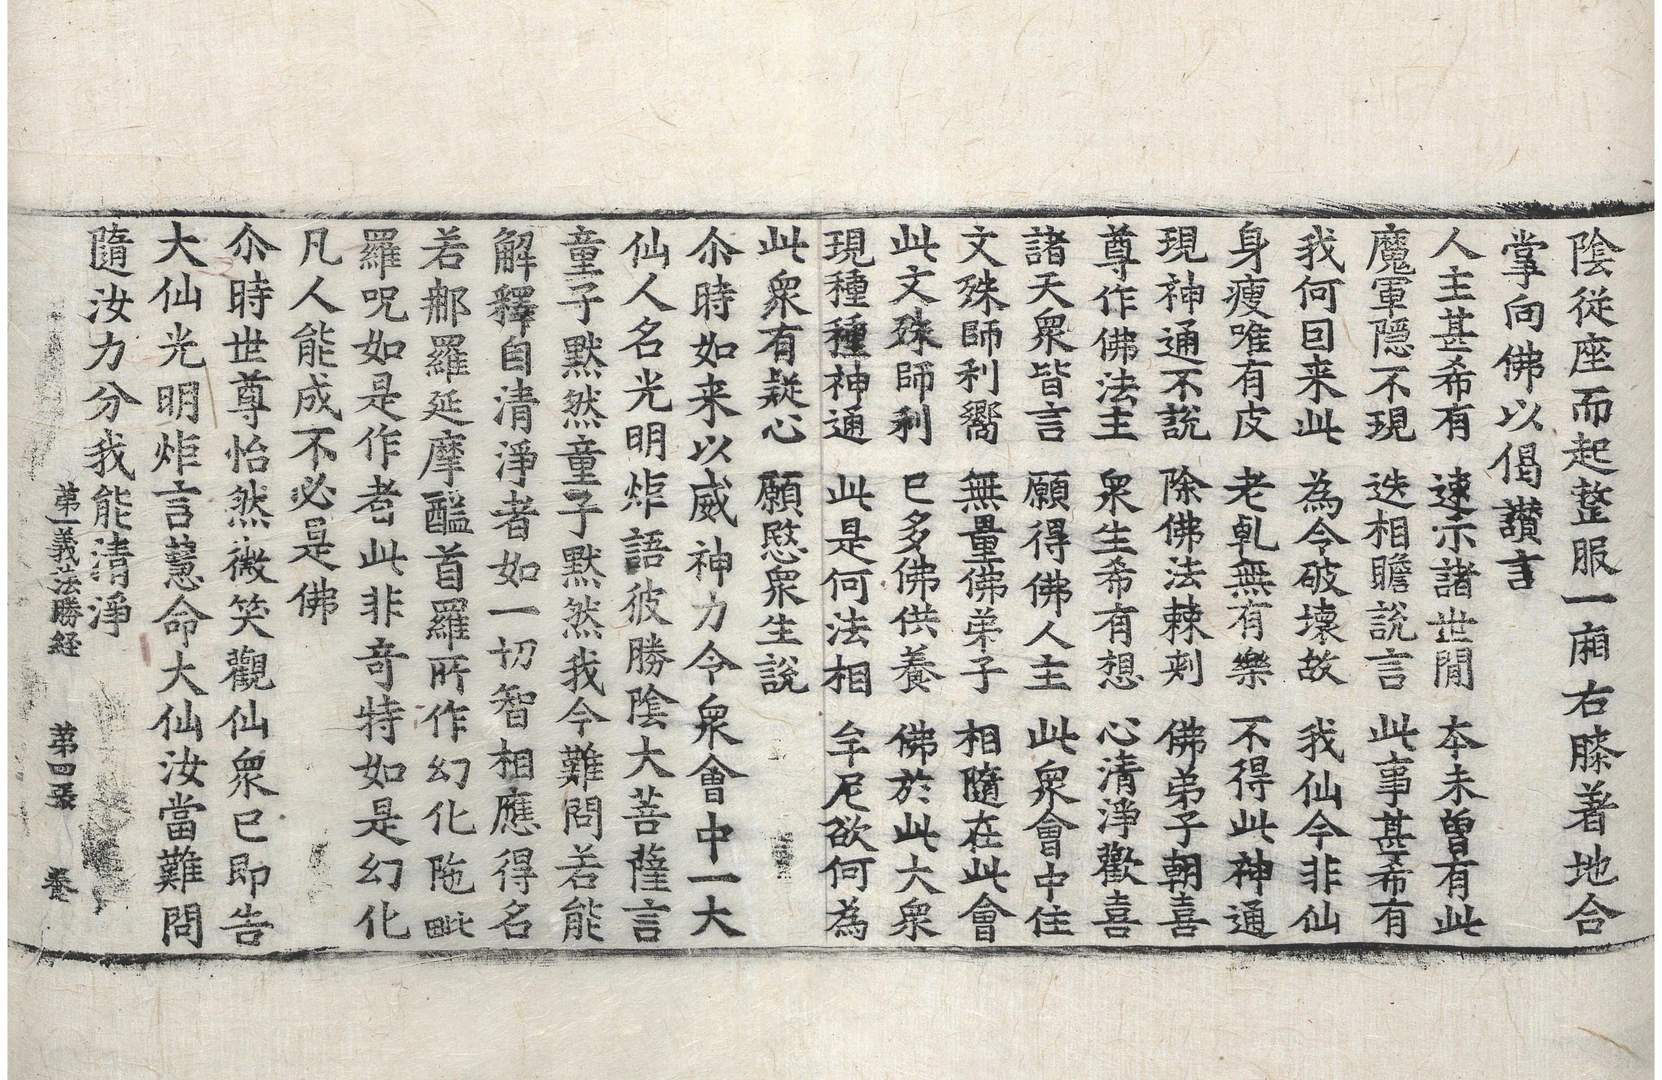 陰從座而起整服一廂右膝著地合
掌向佛以偈讃言
人主甚希有　速示諸世間　本未曾有此
魔軍隱不現　迭相瞻說言　此事甚希有
我何因来此　為今破壞故　我仙今非仙
身瘦唯有皮　老乹無有樂　不得此神通
現神通不說　除佛法棘刺　佛弟子朝喜
尊作佛法主　衆生希有想　心清淨歡喜
諸天衆皆言　願得佛人主　此衆會中住
文殊師利嚮　無量佛弟子　相隨在此會
此文殊師利　已多佛供養　佛於此大衆
現種種神通　此是何法相　牟尼欲何為
此衆有疑心　願愍衆生說
尒時如来以威神力令衆會中一大
仙人名光明炬語彼勝陰大菩薩言
童子默然童子默然我今難問若能
解釋自清淨者如一切智相應得名
若那羅延摩醯首羅所作幻化陁毗
羅呪如是作者此非奇特如是幻化
凡人能成不必是佛
尒時世尊怡然微笑觀仙衆已即告
大仙光明炬言慧命大仙汝當難問
隨汝力分我能清淨
第一義法勝経　第四張　養